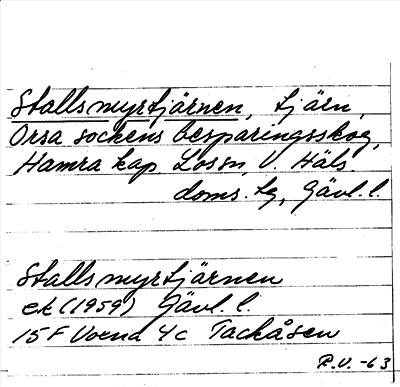 Stallsmyrtjärnen, tjärn,
Orsa sockens besparingsskog,
Hamra kap. Lossn, V. Häls.
doms. lg, Gävl. l.
Stallsmyrtjärnen
ek (1959) Gävl. l.
15F Voxna 4c Tackåsen
R.V. -63